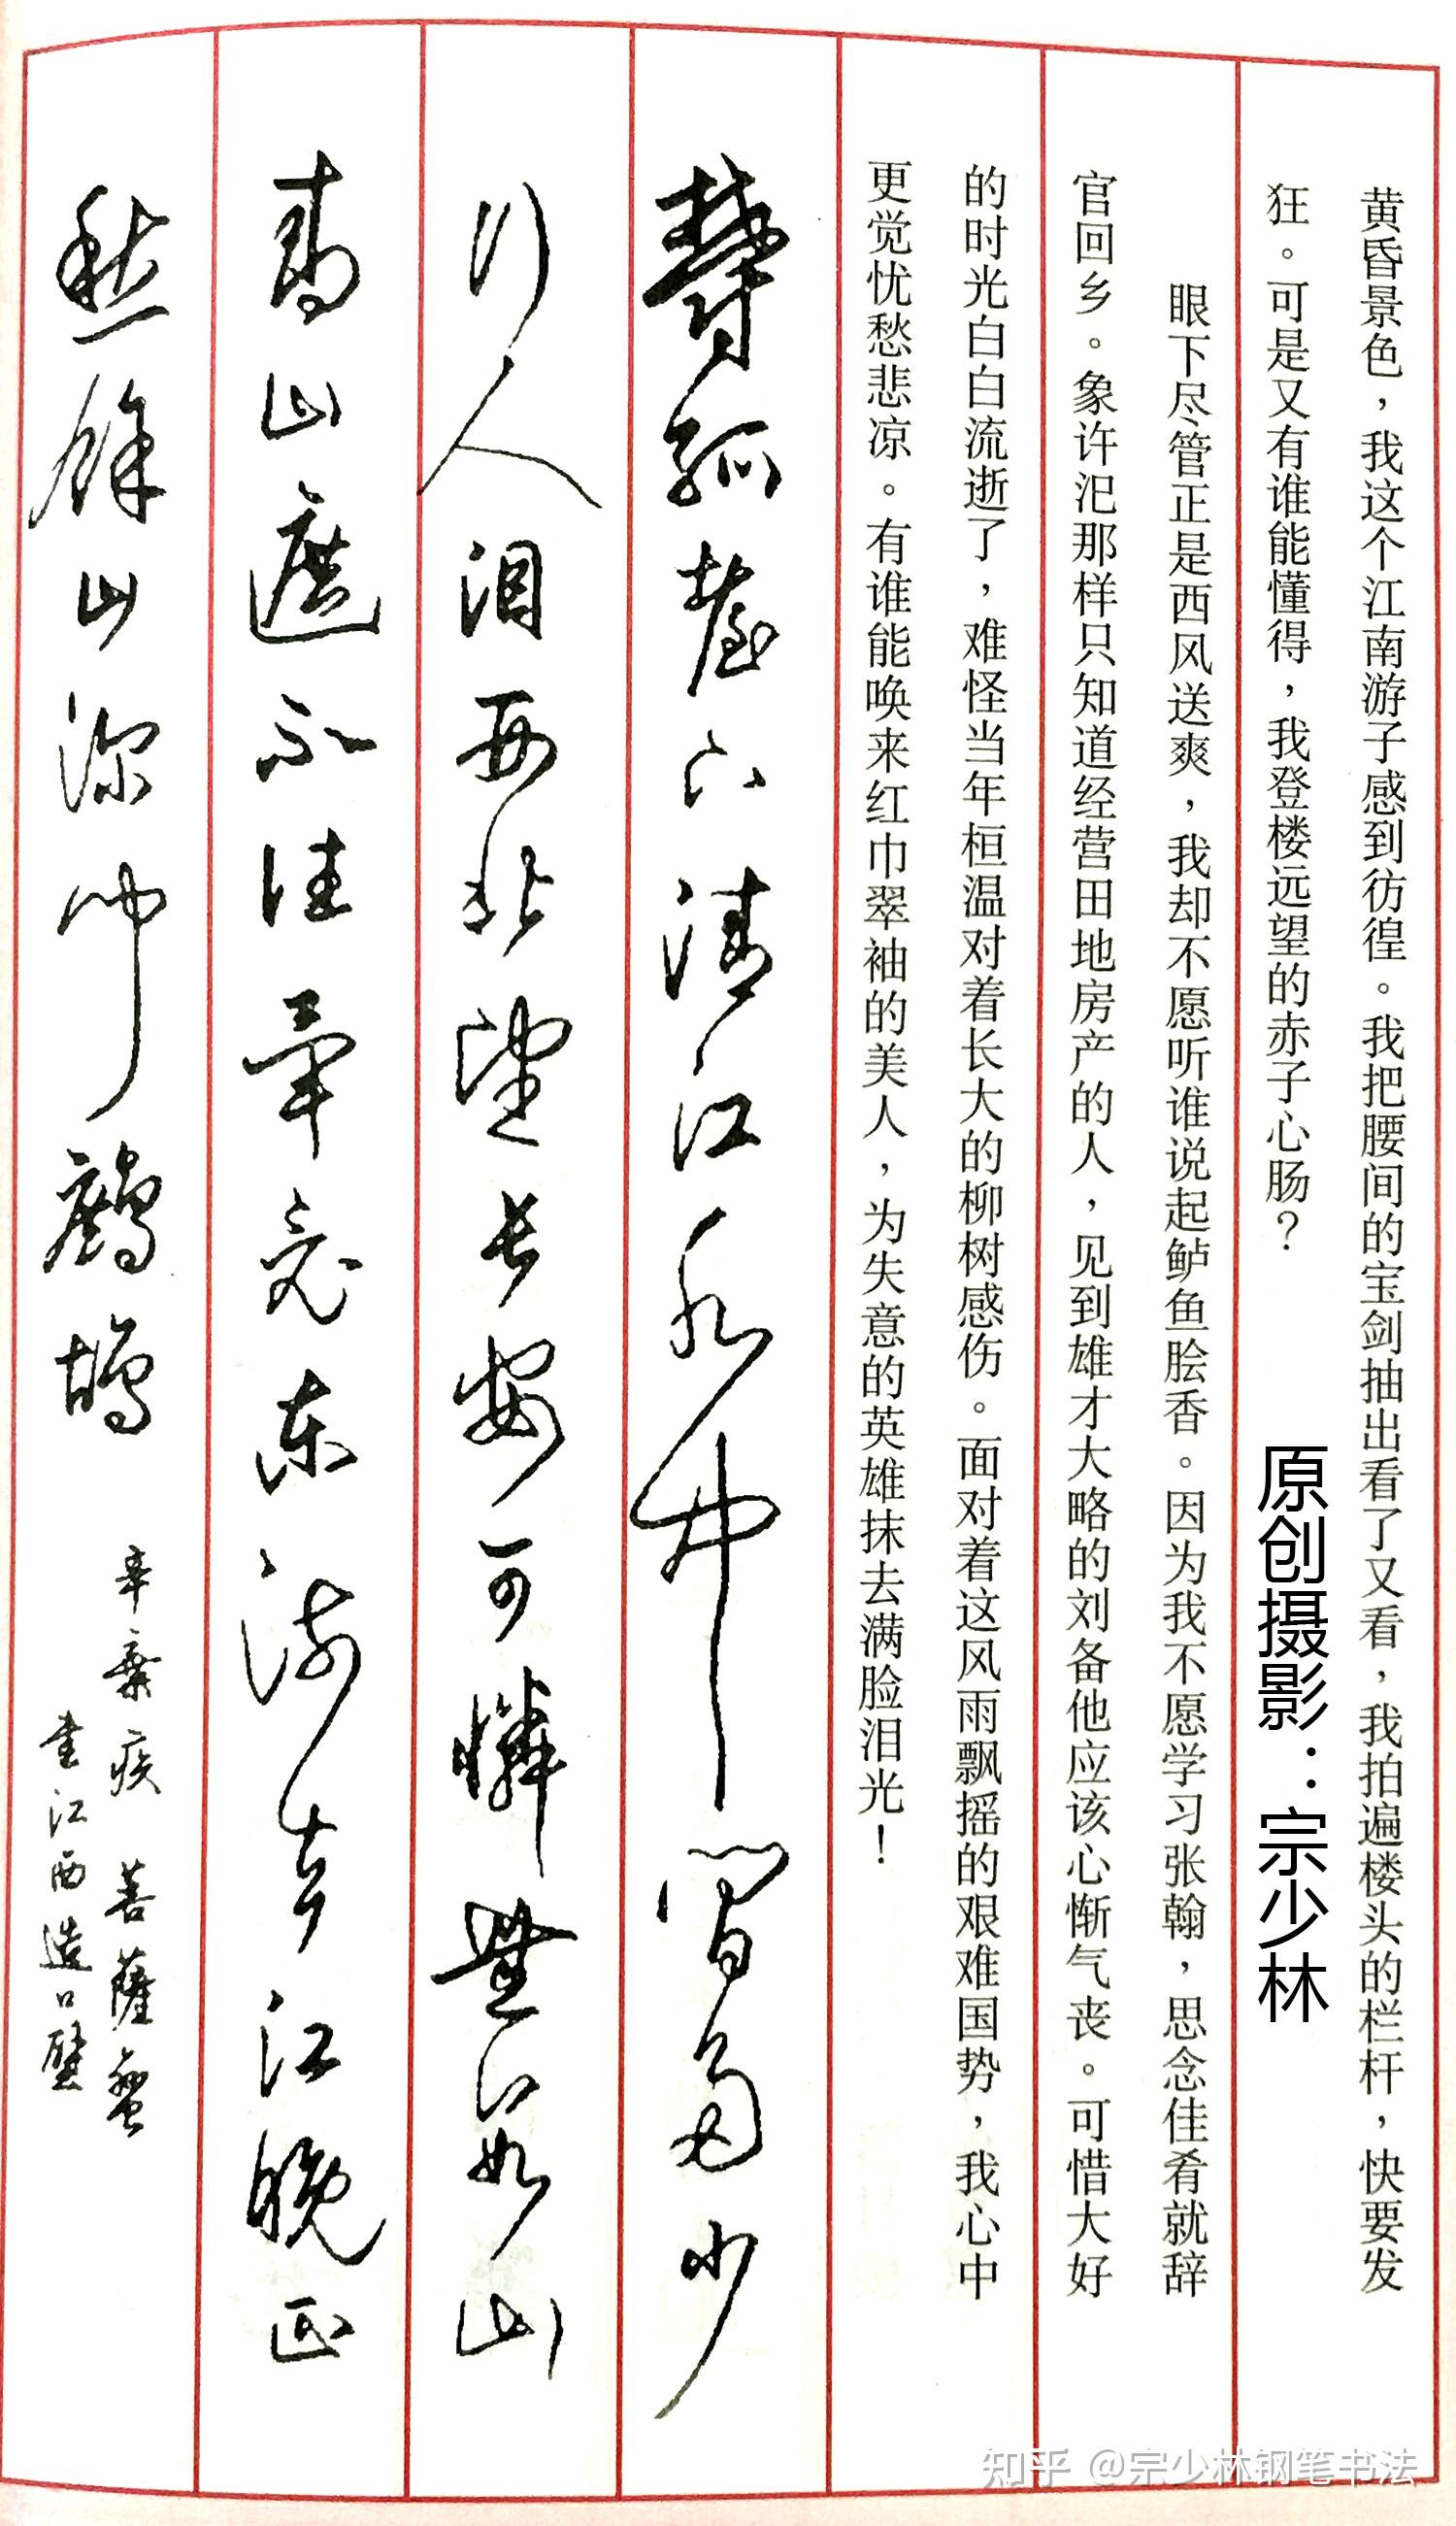 黄昏景色，我这个江南游子感到彷徨。我把腰间的宝剑抽出看了又看，我拍遍楼头的栏杆，快要发
狂。可是又有谁能懂得，我登楼远望的赤子心肠？
原创摄影：宗少林
眼下尽管正是西风送爽，我却不愿听谁说起鲈鱼脍香。因为我不愿学习张翰，思念佳肴就辞
官回乡。象许汜那样只知道经营田地房产的人，见到雄才大略的刘备他应该心惭气丧。可惜大好
的时光白白流逝了，难怪当年桓温对着长大的柳树感伤。面对着这风雨飘摇的艰难国势，我心中
更觉忧愁悲凉。有谁能唤来红巾翠袖的美人，为失意的英雄抹去满脸泪光！
鬱孤臺下清江水中間多少
行人泪西北望長安可憐無数山
青山遮不住畢竟东流去江晚正
愁餘山深闻鷓鴣
辛棄疾 菩薩蛮
書江西造口壁
知乎 @宗少林钢笔书法